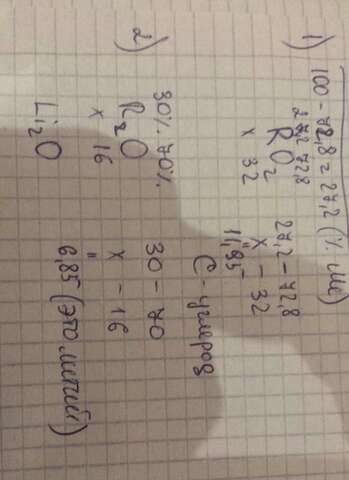 100 - 72,8 = 27,2 (% ме)
1) 27,2 72,8
RO₂ 27,2 - 72,8
x 32 x - 32
11,95
C - углерод
2) 30% 70% 30 - 70
R₂O x - 16
x 16
Li₂O 6,85 (это литий)